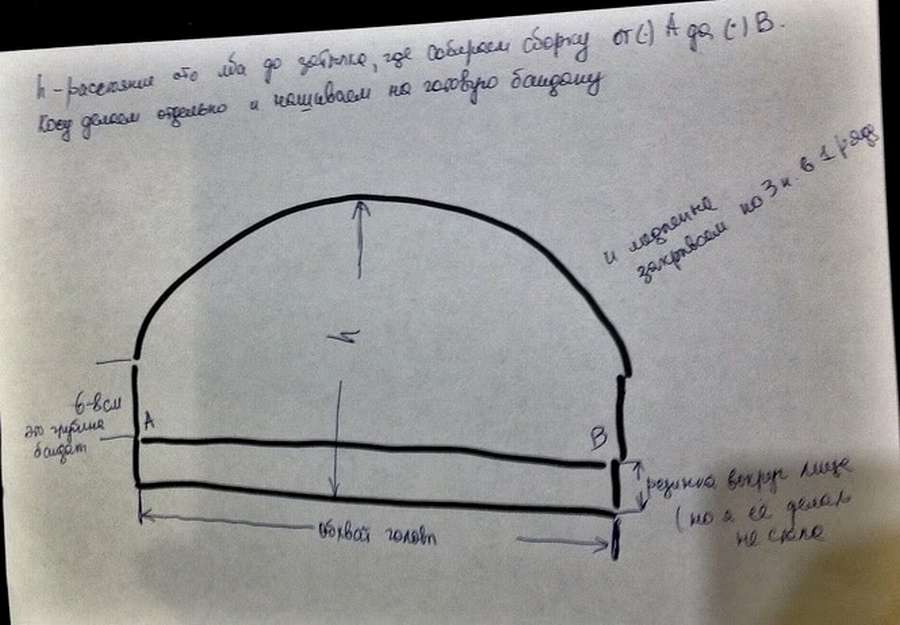 h - расстояние ото лба до затылка, где собираем сборку от (·) А до (·) В.
Косу делаем отдельно и нашиваем на готовую бандану
и медленно
закрываем по 3 п. в 1 ряд
h
6-8 см
это глубина
бандан
А
В
резинка вокруг лица
(но я её делать
не стала
обхват головы